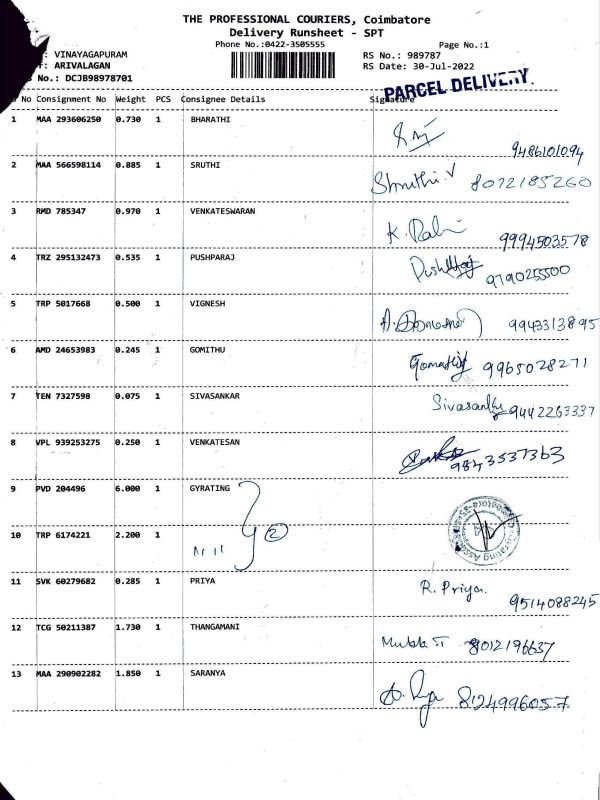 THE PROFESSIONAL COURIERS, Coimbatore
Delivery Runsheet - SPT
Phone No.:0422-3505555 Page No.:1
: VINAYAGAPURAM RS No.: 989787
: ARIVALAGAN RS Date: 30-Jul-2022
No.: DCJB98978701
PARCEL DELIVERY.
No Consignment No Weight PCS Consignee Details Signature
1 MAA 293606250 0.730 1 BHARATHI
9486101094
2 MAA 566598114 0.885 1 SRUTHI Shruthi.V 8072185260
3 RMD 785347 0.970 1 VENKATESWARAN
9994503578
4 TRZ 295132473 0.535 1 PUSHPARAJ
9790255500
5 TRP 5017668 0.500 1 VIGNESH
9943313895
6 AMD 24653983 0.245 1 GOMITHU Gomathi 9965028271
7 TEN 7327598 0.075 1 SIVASANKAR Sivasankar 9442263337
8 VPL 939253275 0.250 1 VENKATESAN
9843537363
9 PVD 204496 6.000 1 GYRATING
10 TRP 6174221 2.200 1
2
11 SVK 60279682 0.285 1 PRIYA R. Priya.
9514088245
12 TCG 50211387 1.730 1 THANGAMANI
8012196637
13 MAA 290902282 1.850 1 SARANYA
8124996057